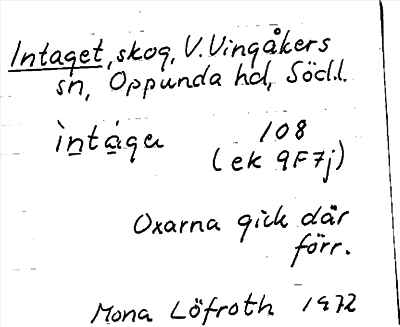 Intaget, skog, V. Vingåkers
sn, Oppunda hd, Södl.
ìntága 108
(ek 9F7j)
Oxarna gick där
förr.
Mona Löfroth 1972